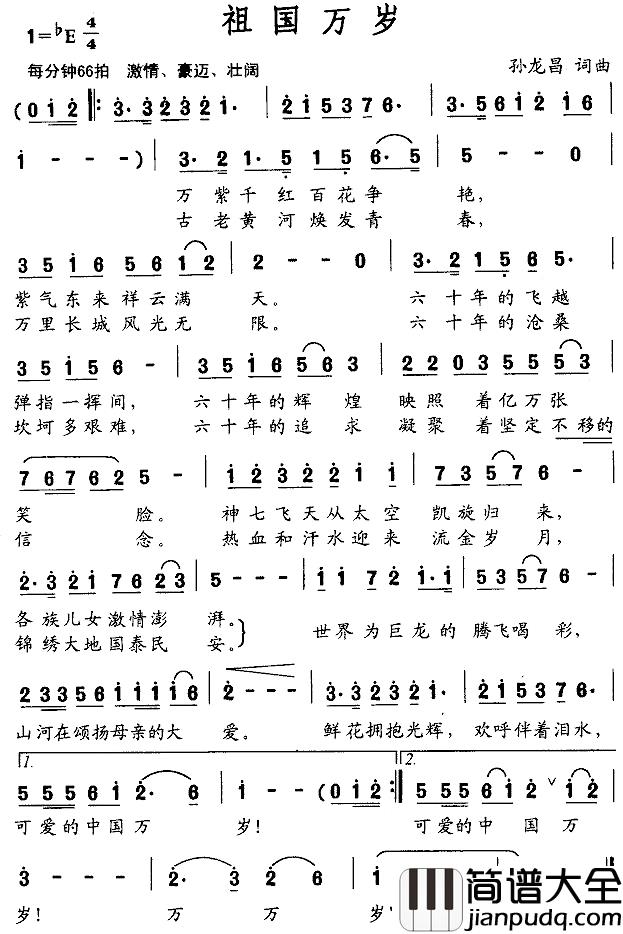 祖国万岁
1=♭E 4/4
每分钟66拍 激情、豪迈、壮阔
孙龙昌 词曲
(0 1 2 ‖: 3· 3 2 3 2 1· | 2 1 5 3 7 6· | 3· 5 6 1 2 1 6 |
1 - - -) | 3· 2 1· 5 1 5 6· 5 | 5 - - 0 |
万紫千红百花争 艳，
古老黄河焕发青 春，
3 5 1 6 5 6 1 2 | 2 - - 0 | 3· 2 1 5 6 5· |
紫气东来祥云满 天。 六十年的飞越
万里长城风光无 限。 六十年的沧桑
3 5 1 5 6 - | 3 5 1 6 5 6 3 | 2 2 0 3 5 5 5 5 3 |
弹指一挥间， 六十年的辉 煌 映照 着亿万张
坎坷多艰难， 六十年的追 求 凝聚 着坚定不移的
7 6 7 6 2 5 - | 1 2 3 2 2 1 1 | 7 3 5 7 6 - |
笑 脸。 神七飞天从太空 凯旋归 来，
信 念。 热血和汗水迎来 流金岁 月，
2· 3 2 1 7 6 2 3 | 5 - - - | 1 1 7 2 1· 1 | 5 3 5 7 6 - |
各族儿女激情澎 湃。
锦绣大地国泰民 安。
世界为巨龙的 腾飞喝 彩，
2 3 3 5 6 1 1 1 1 6 | 2 - - - | 3· 3 2 3 2 1· | 2 1 5 3 7 6· |
山河在颂扬母亲的大 爱。 鲜花拥抱光辉， 欢呼伴着泪水，
1. 2.
5 5 5 6 1 2· 6 | 1 - - (0 1 2 :‖ 5 5 5 6 1 2 ∨ 1 2 |
可爱的中国万 岁！ 可爱的中 国 万
3 - - - | 2· 2 2 6 | 1
岁！ 万 万 岁
简谱大全
jianpudq.com